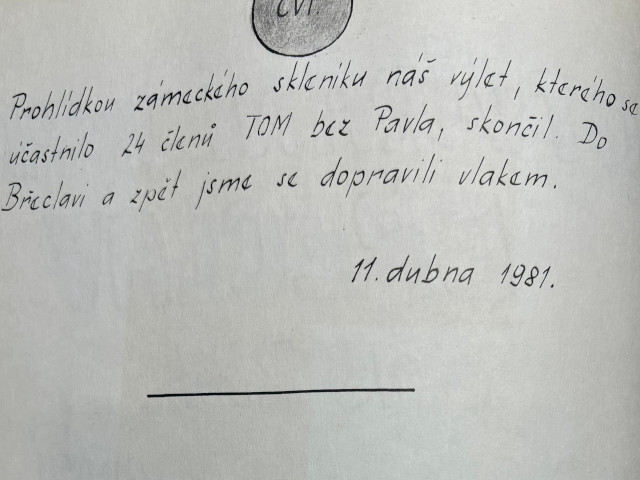 CVI
Prohlídkou zámeckého skleníku náš výlet, kterého se
účastnilo 24 členů TOM bez Pavla, skončil. Do
Břeclavi a zpět jsme se dopravili vlakem.
11. dubna 1981.